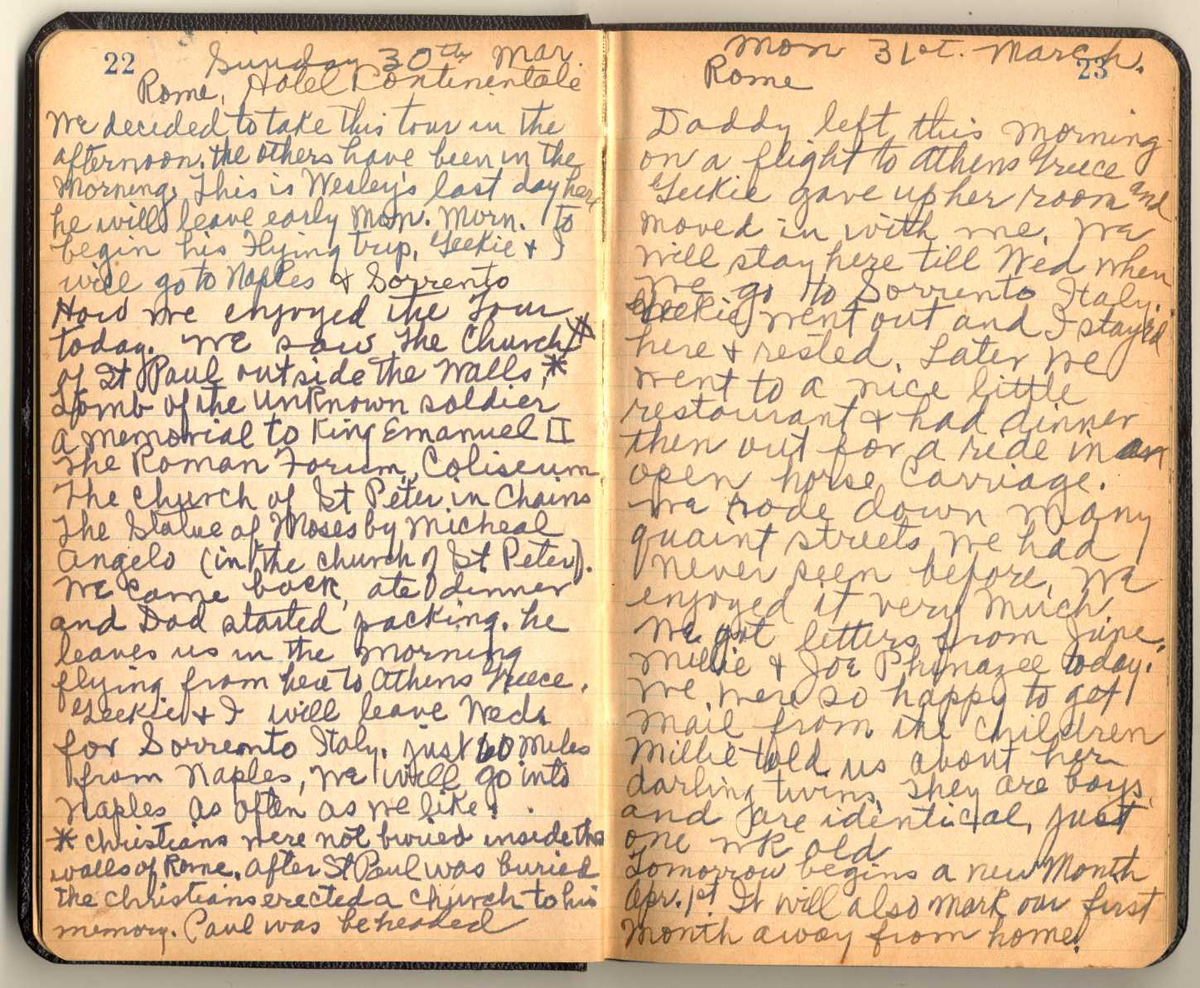 22
Sunday 30th Mar.
Rome, Hotel Continentale
We decided to take this tour in the
afternoon. the others have been in the
morning. This is Wesley's last day here
he will leave early Mon. Morn. to
begin his flying trip. Geekie & I
will go to Naples & Sorrento
How we enjoyed the Tour
today. We saw The Church *
of St Paul outside the walls, *
Tomb of the unknown soldier
a memorial to King Emanuel II
The Roman Forum, Coliseum
The Church of St Peter in Chains
The Statue of Moses by Micheal
Angelo (in the church of St Peter).
We came back, ate dinner
and Dad started packing. he
leaves us in the morning
flying from here to Athens Greece.
Geekie & I will leave Weds
for Sorrento Italy. just 60 miles
from Naples, we will go into
Naples as often as we like.
* Christians were not buried inside the
walls of Rome. after St Paul was buried
the christians erected a church to his
memory. Paul was beheaded
23
Mon 31st. March.
Rome
Daddy left this morning
on a flight to Athens Greece
Geekie gave up her room and
moved in with me. We
will stay here till Wed when
we go to Sorrento Italy.
Geekie went out and I stay'd
here & rested. Later we
went to a nice little
restaurant & had dinner
then out for a ride in an
open horse Carriage.
We rode down many
quaint streets we had
never seen before. We
enjoyed it very much
We got letters from June,
Millie & Joe Phinazee today.
We were so happy to get
mail from the children
Millie told us about her
darling twins. They are boys
and are identical, just
one wk old
Tomorrow begins a new Month
Apr. 1st It will also mark our first
month away from home.